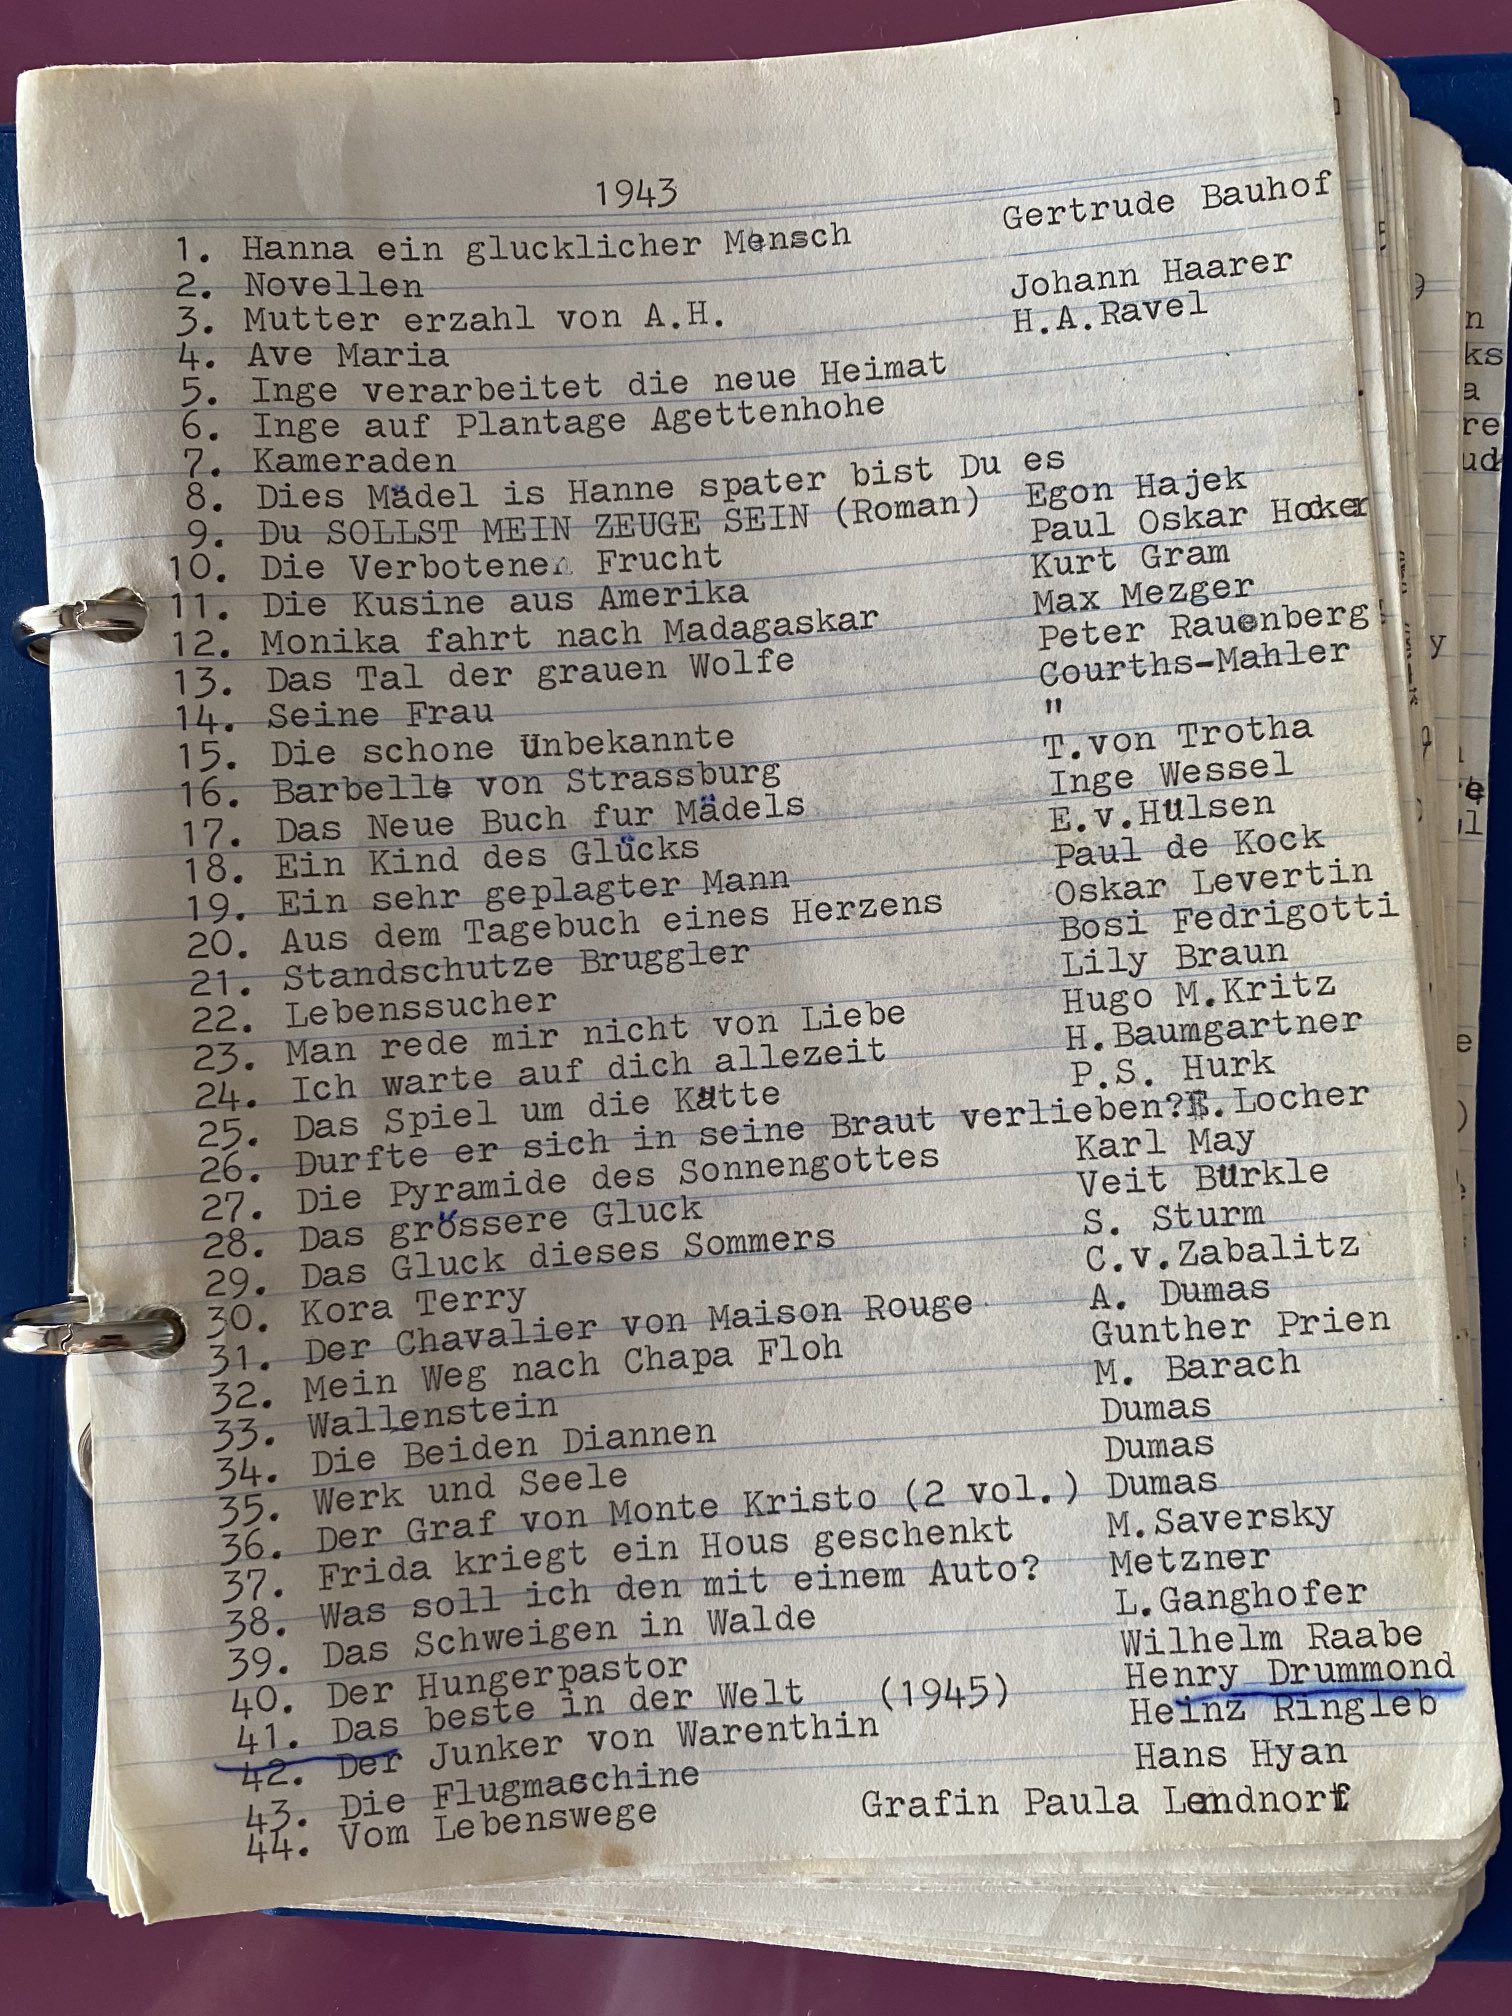 1943
1. Hanna ein glucklicher Mensch Gertrude Bauhof
2. Novellen
3. Mutter erzahl von A.H. Johann Haarer
4. Ave Maria H.A.Ravel
5. Inge verarbeitet die neue Heimat
6. Inge auf Plantage Agettenhohe
7. Kameraden
8. Dies Mädel is Hanne spater bist Du es
9. Du SOLLST MEIN ZEUGE SEIN (Roman) Egon Hajek
10. Die Verbotene Frucht Paul Oskar Hocker
11. Die Kusine aus Amerika Kurt Gram
12. Monika fahrt nach Madagaskar Max Mezger
13. Das Tal der grauen Wolfe Peter Rauenberg
14. Seine Frau Courths-Mahler
15. Die schone Unbekannte "
16. Barbelle von Strassburg T.von Trotha
17. Das Neue Buch fur Mädels Inge Wessel
18. Ein Kind des Glücks E.v.Hülsen
19. Ein sehr geplagter Mann Paul de Kock
20. Aus dem Tagebuch eines Herzens Oskar Levertin
21. Standschutze Bruggler Bosi Fedrigotti
22. Lebenssucher Lily Braun
23. Man rede mir nicht von Liebe Hugo M.Kritz
24. Ich warte auf dich allezeit H.Baumgartner
25. Das Spiel um die Kätte P.S. Hurk
26. Durfte er sich in seine Braut verlieben? .Locher
27. Die Pyramide des Sonnengottes Karl May
28. Das grössere Gluck Veit Bürkle
29. Das Gluck dieses Sommers S. Sturm
30. Kora Terry C.v.Zabalitz
31. Der Chavalier von Maison Rouge A. Dumas
32. Mein Weg nach Chapa Floh Gunther Prien
33. Wallenstein M. Barach
34. Die Beiden Diannen Dumas
35. Werk und Seele Dumas
36. Der Graf von Monte Kristo (2 vol.) Dumas
37. Frida kriegt ein Hous geschenkt M.Saversky
38. Was soll ich den mit einem Auto? Metzner
39. Das Schweigen in Walde L.Ganghofer
40. Der Hungerpastor Wilhelm Raabe
41. Das beste in der Welt (1945) Henry Drummond
42. Der Junker von Warenthin Heinz Ringleb
43. Die Flugmaschine Hans Hyan
44. Vom Lebenswege Grafin Paula